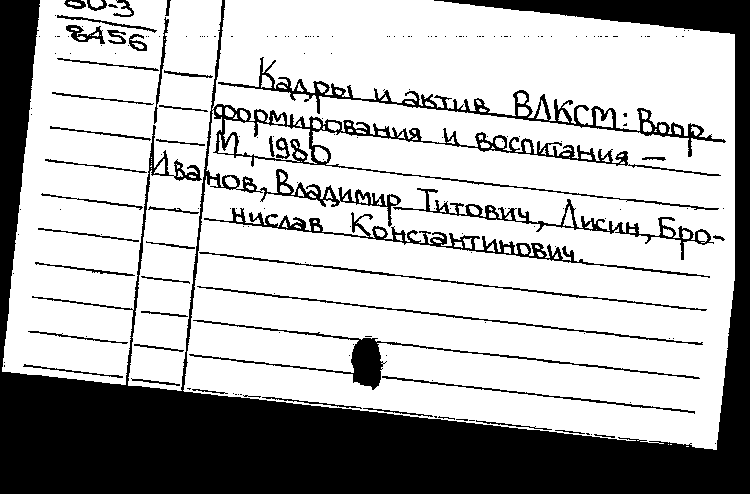 80-3
8456
Кадры и актив ВЛКСМ: Вопр.
формирования и воспитания —
М., 1980.
Иванов, Владимир Титович, Лисин, Бро-
нислав Константинович.